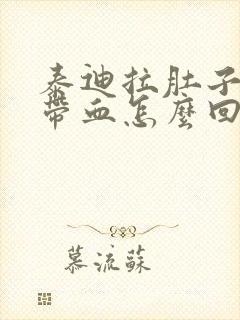 泰迪拉肚子
带血怎麼回
慕流蘇